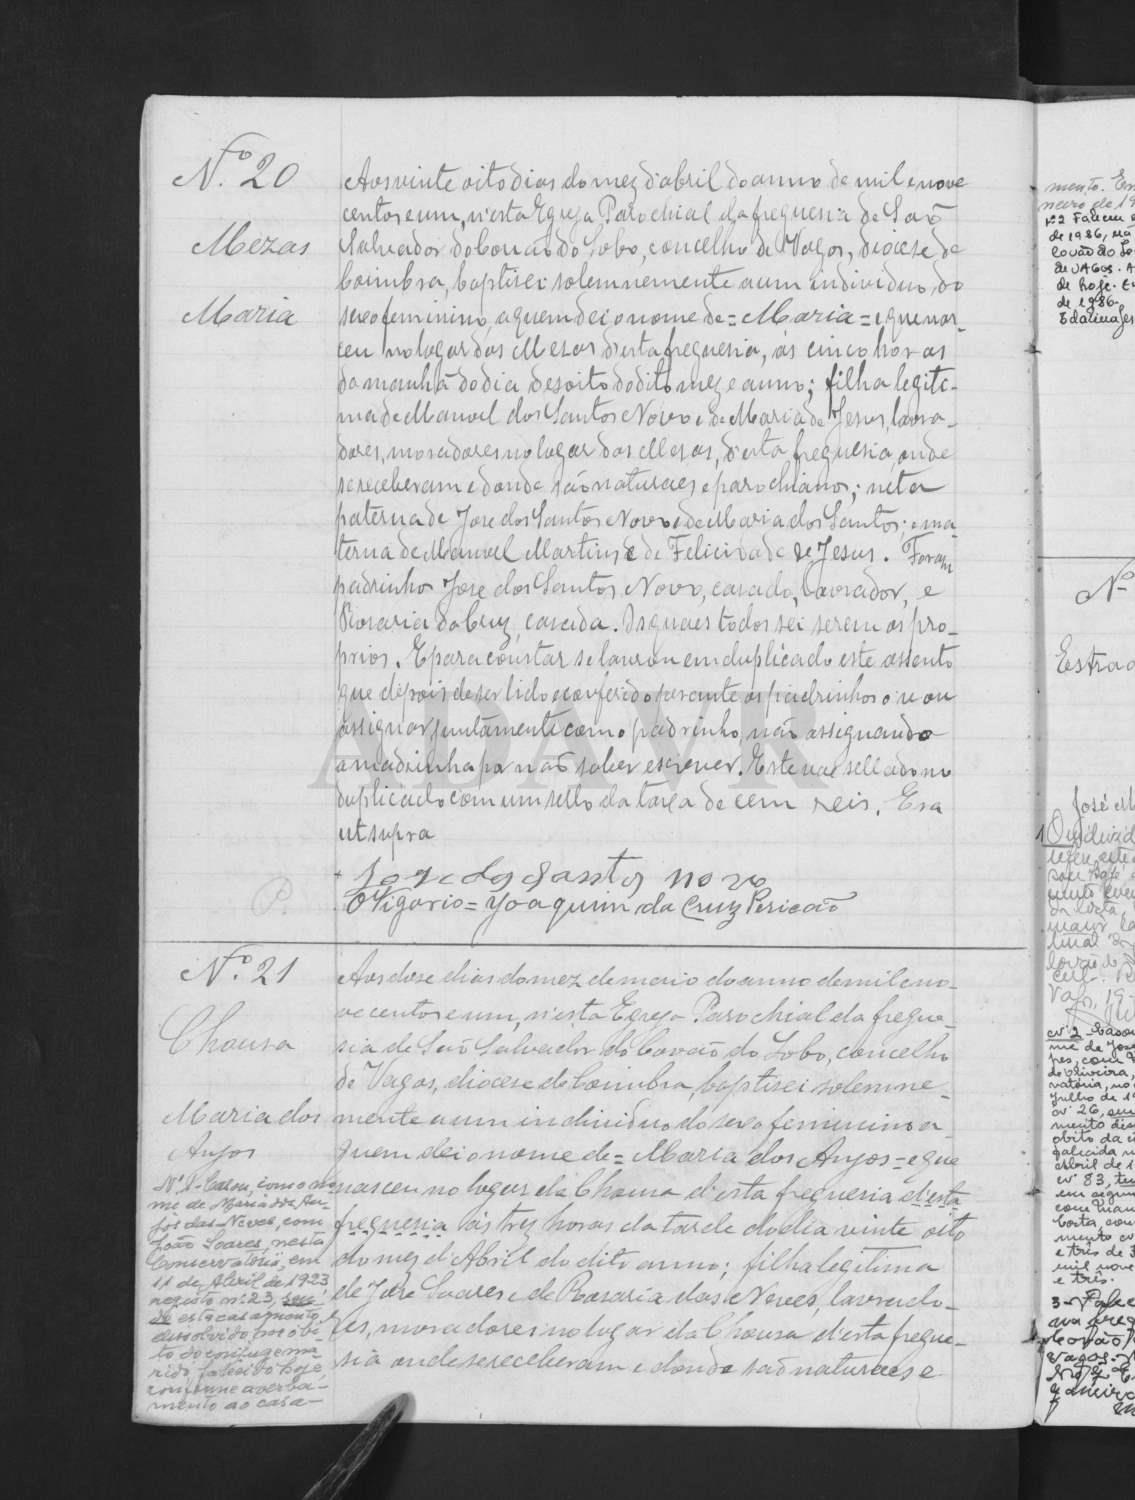 Nº 20
Mezas
Maria
Aos vinte oito dias do mez d'abril do anno de mil e nove
centos e um, n'esta Egreja Parochial da freguesia de São
Salvador do Covão do Lobo, concelho de Vagos, diocese de
Coimbra, baptisei solemnemente a um individuo do
sexo feminino, a quem dei o nome de = Maria = e que nas-
ceu no logar das Mezas d'esta freguesia, ás cinco horas
da manhã do dia desoito do dito mez e anno; filha legiti-
ma de Manuel dos Santos Novo e de Maria de Jesus, lavra-
dores, moradores no logar das Mezas, d'esta freguesia, onde
se receberam e donde são naturaes e parochianos; neta
paterna de Jose dos Santos Novo e de Maria dos Santos; e ma-
terna de Manuel Martins e de Felicidade de Jesus. Foram
padrinhos Jose dos Santos Novo, casado, lavrador, e
Rosaria da Cruz, casada. Os quaes todos sei serem os pro-
prios. E para constar se lavrou em duplicado este assento
que depois de ser lido e conferido perante os padrinhos o vou
assignar juntamente com o padrinho, não assignando
a madrinha por não saber escrever. Este vae sellado no
duplicado com um sello da taxa de cem reis. Era
ut supra
Joze dos Santos novo
O Vigario = Joaquim da Cruz Pericão
ADAVR
Nº 21
Chousa
Maria dos
Anjos
Aos doze dias do mez de maio do anno de mil e no-
ve centos e um, n'esta Egreja Parochial da fregue-
sia de São Salvador do Covão do Lobo, concelho
de Vagos, diocese de Coimbra, baptisei solemne-
mente a um individuo do sexo feminino a
quem dei o nome de = Maria dos Anjos = e que
nasceu no logar da Chousa d'esta freguesia d'esta
freguesia ás tres horas da tarde do dia vinte oito
do mez d'Abril do dito anno; filha legitima
de Jose Soares e de Rosaria das Neves, lavrado-
res, moradores no logar da Chousa d'esta fregue-
sia onde se receberam e donde são naturaes e
Nº 1- Casou, com o no-
me de Maria dos An-
jos das Neves, com
João Soares, nesta
Conservatória, em
11 de Abril de 1923,
registo nº 23, sen-
do este casamento
dissolvido por óbi-
to do conjuge ma-
rido, falecido hoje,
conforme averba-
mento ao casa-
mento. Em
neiro de 19
Nº 2 Faleceu
de 1986, na
Covão do Lo
de VAGOS. A
de hoje. E
de 1986.
Nº
Estrad
José M
nº 2 Casou
me de José
pes, com
de Oliveira,
vatória, no
Julho de 19
nº 26,
mento dis
óbito da
falecida
abril de 1
nº 83,
em segun
Costa, con
mento
e três de
mil nove
e três.
3- Falec
na freg
Covão
Vagos.
Janeiro